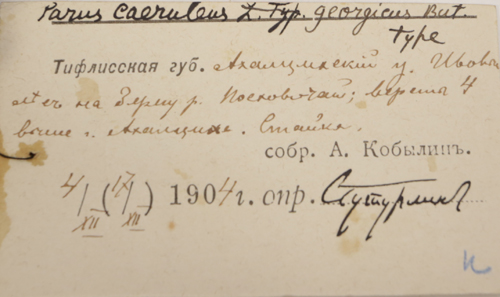 Parus caeruleus L. Typ. georgicus But.
type
Тифлисская губ. Ахалцихский у. Ивовый
лѣсъ на берегу р. Посховчай; верста 4
выше г. Ахалциха. Стайки.
собр. А. Кобылинъ.
4/XII (17/XII) 1904 г. опр. Сутурлин